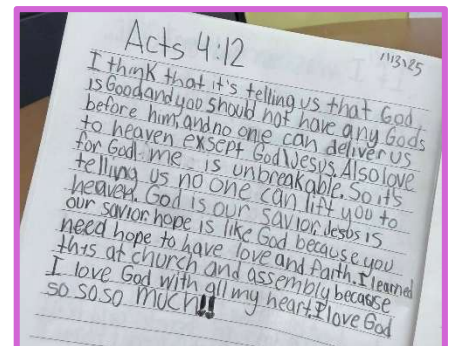 Acts 4:12
1\13\25
I think that it's telling us that God
is Good and you should not have any Gods
before him, and no one can deliver us
to heaven exsept God\Jesus. Also love
for God me is unbreakable. So it's
telling us no one can lift you to
heaven. God is our savior. Jesus is
our savior. hope is like God because you
need hope to have love and faith. I learned
this at church and assembly because
I love God with all my heart. I love God
so so so much!!